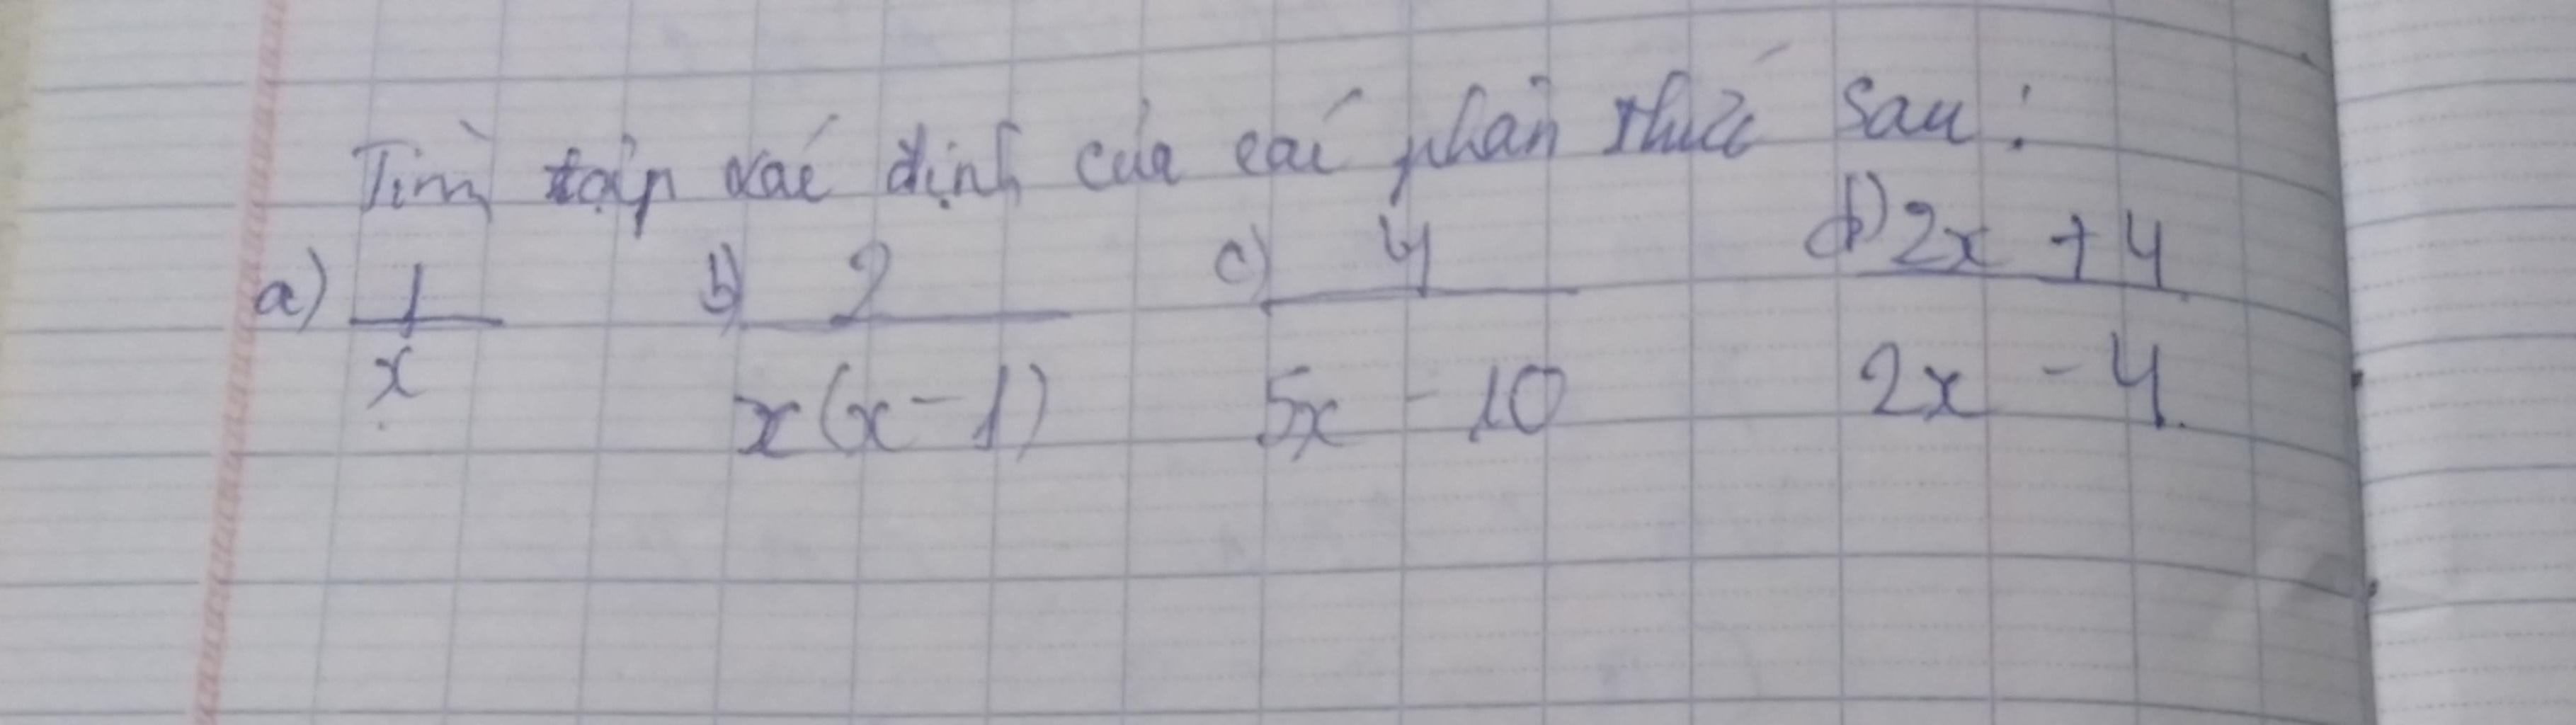 Tìm tập xác định của các phân thức sau:
a) 1/x b) 2/x(x-1) c) 4/5x - 10 d) 2x + 4/2x - 4